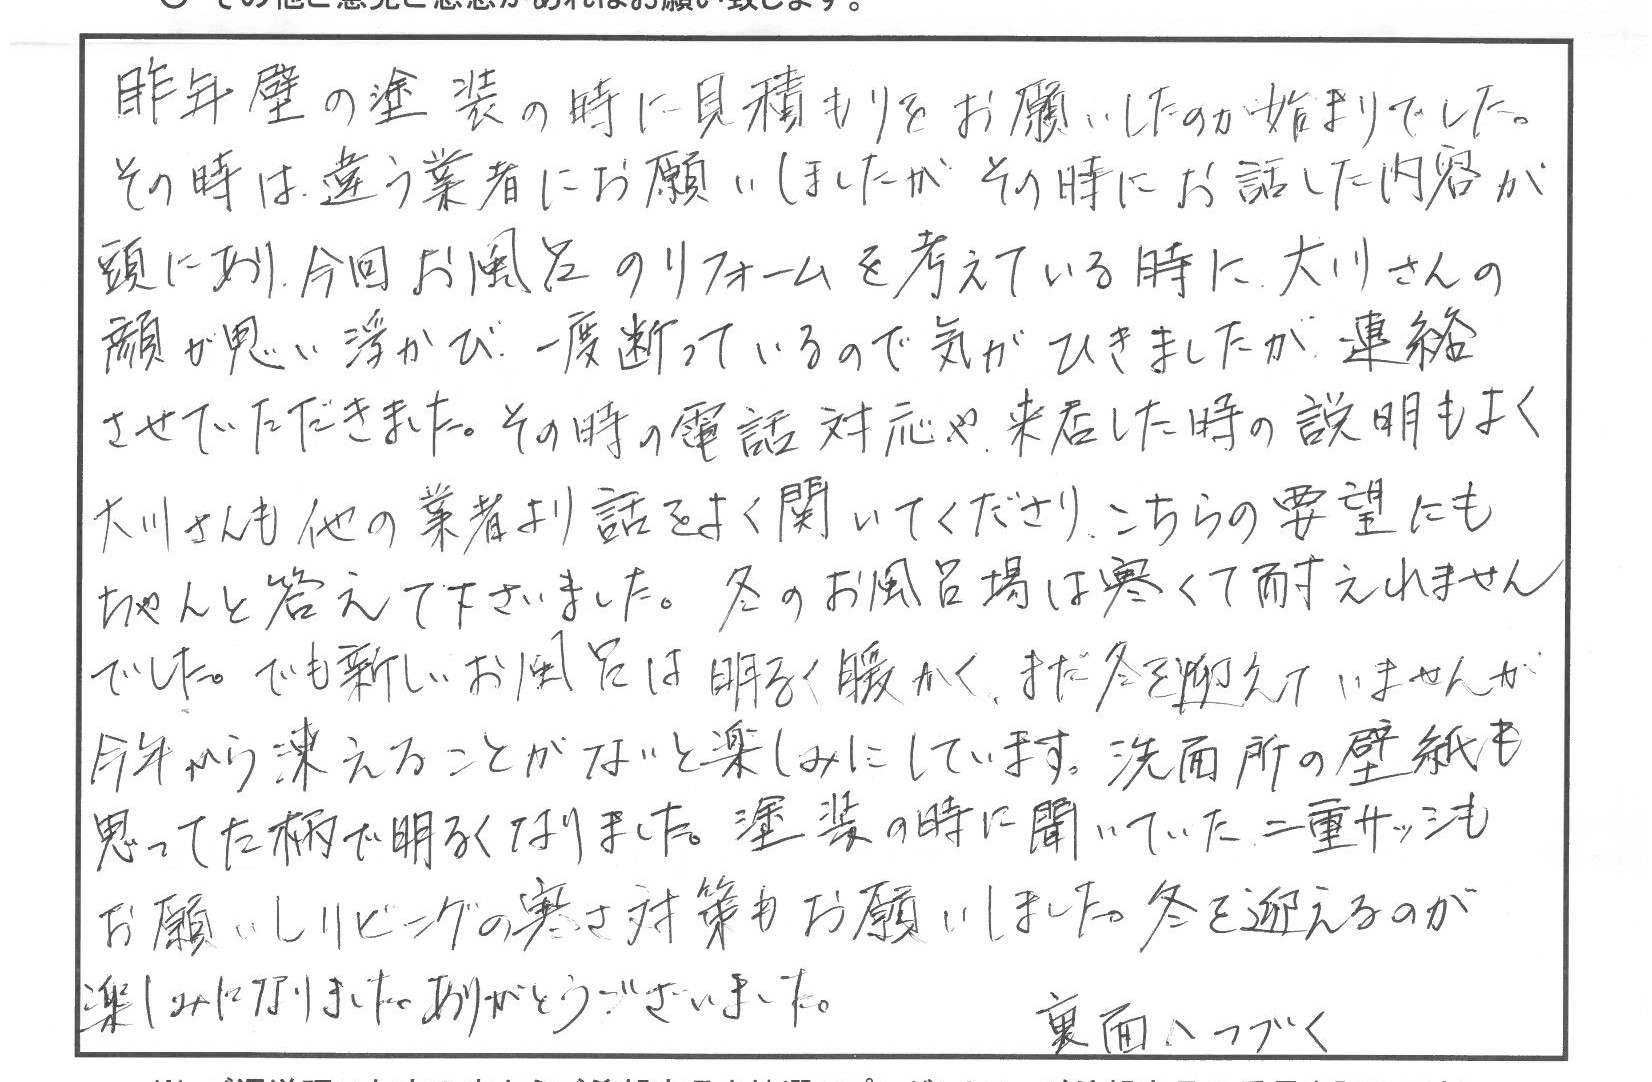 その他ご意見ご感想があればお願い致します。
昨年壁の塗装の時に見積もりをお願いしたのが始まりでした。
その時は、違う業者にお願いしましたが その時にお話した内容が
頭にあり、今回お風呂のリフォームを考えている時に、大川さんの
顔が思い浮かび、一度断っているので気がひきましたが、連絡
させていただきました。その時の電話対応や、来店した時の説明もよく
大川さんも他の業者より話をよく聞いてくださり、こちらの要望にも
ちゃんと答えて下さいました。冬のお風呂場は寒くて耐えれません
でした。でも新しいお風呂は明るく暖かく、まだ冬を迎えていませんが
今年から凍えることがないと楽しみにしています。洗面所の壁紙も
思ってた柄で明るくなりました。塗装の時に聞いていた、二重サッシも
お願いしリビングの寒さ対策もお願いしました。冬を迎えるのが
楽しみになりました。ありがとうございました。
裏面へつづく